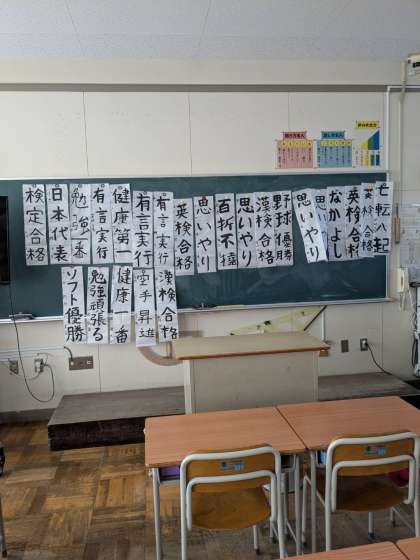 聞き方名人
話し方名人
七転八起
英検合格
英検合格
なかよし
思いやり
野球優勝
漢検合格
思いやり
百折不撓
思いやり
英検合格
有言実行
有言実行
健康第一
有言実行
勉強一番
日本代表
検定合格
漢検合格
空手昇進
健康一番
勉強頑張る
ソフト優勝